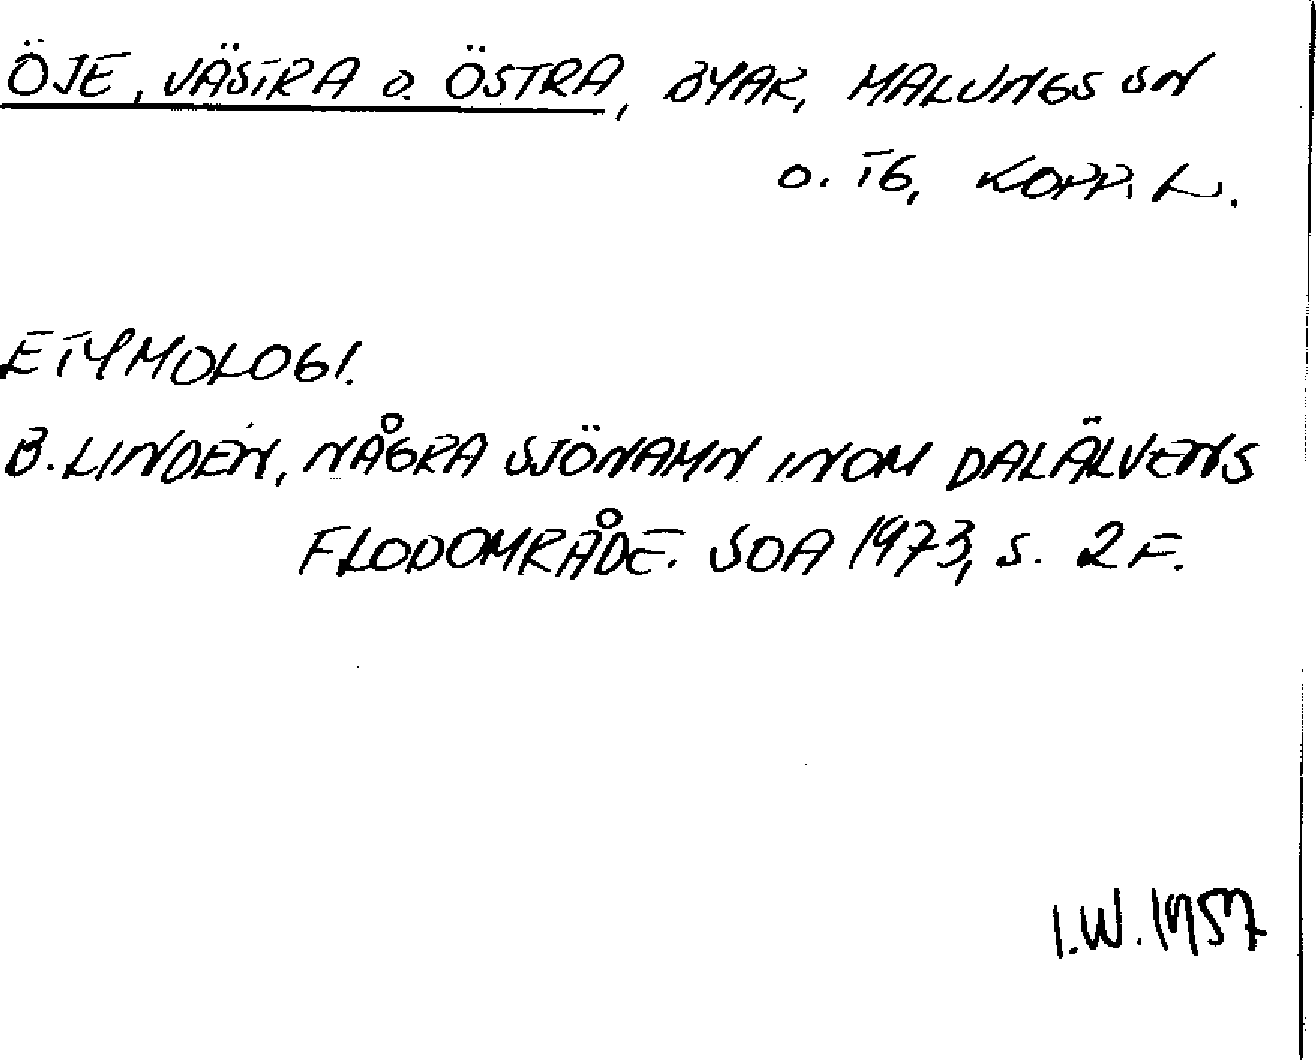 ÖJE, VÄSTRA O. ÖSTRA, BYAR, MALUNGS SN
O. TG, KOPP. L.
ETYMOLOGI.
B. LINDÉN, NÅGRA SJÖNAMN INOM DALÄLVENS
FLODOMRÅDE. SOA 1973, S. 2 F.
I.W. 1957